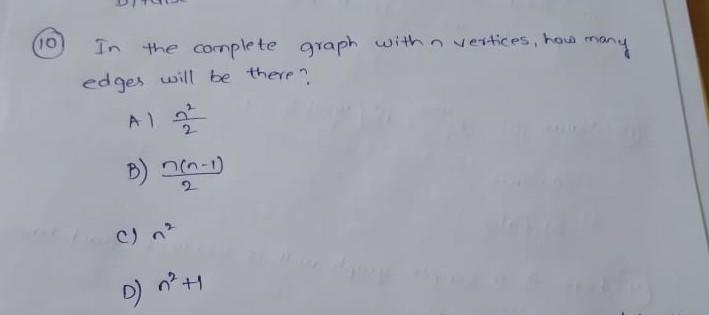 (10) In the complete graph with n vertices, how many
edges will be there?
A) n²/2
B) n(n-1)/2
C) n²
D) n²+1